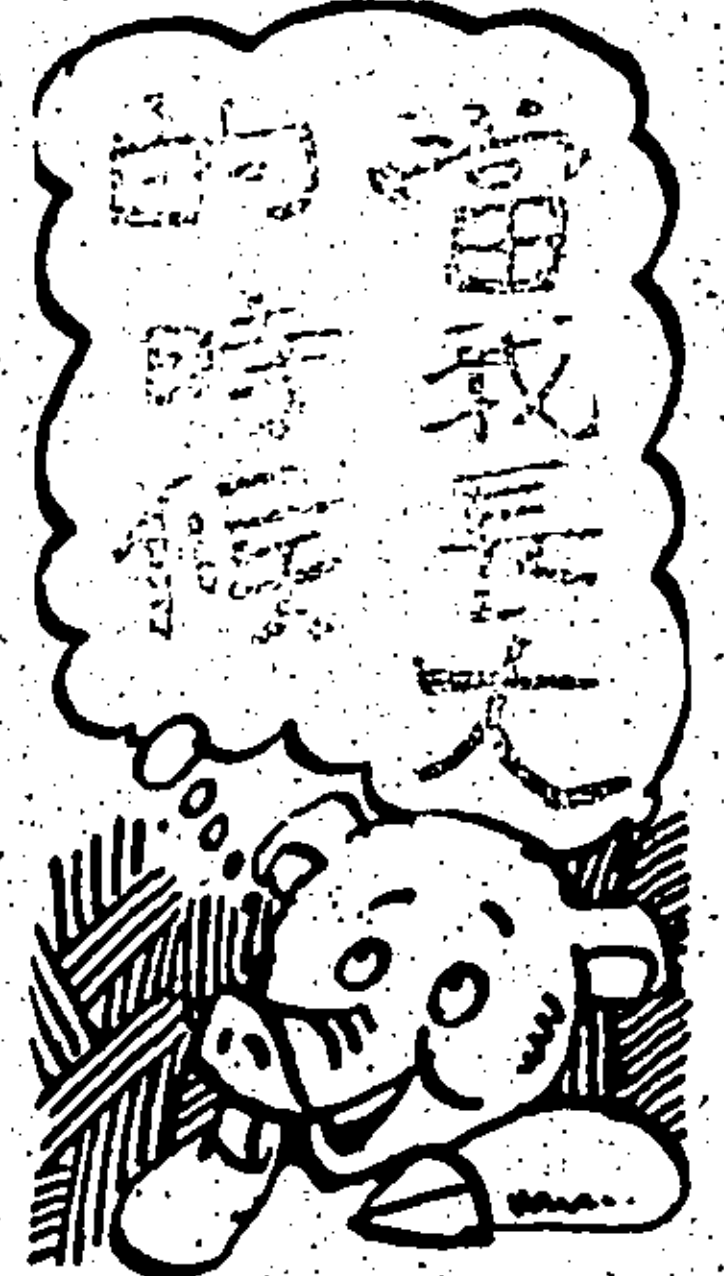 當我長大
的時候